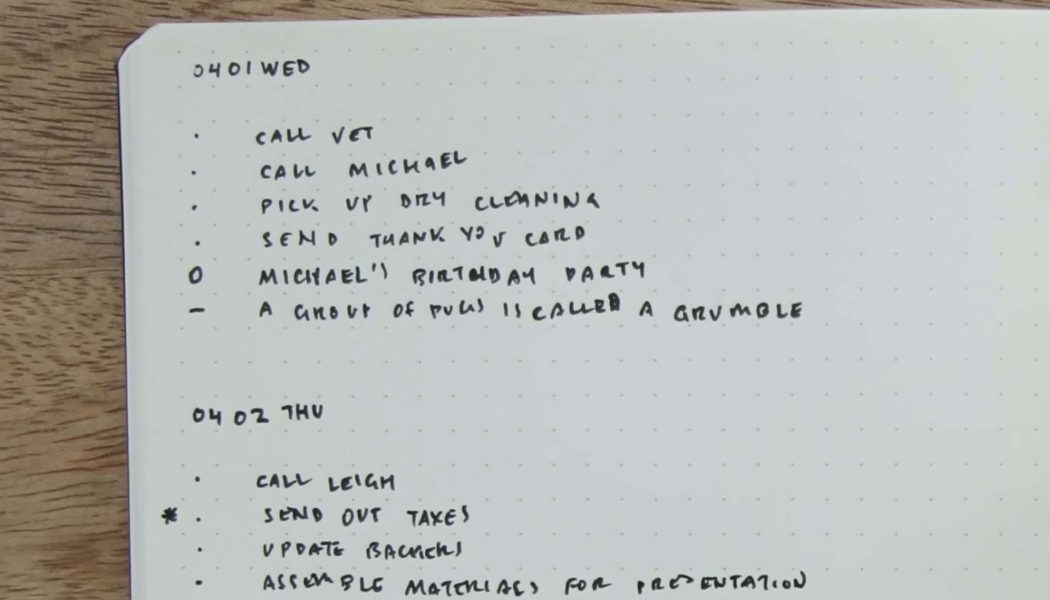 0401 WED
· CALL VET
· CALL MICHAEL
· PICK UP DRY CLEANING
· SEND THANK YOU CARD
O MICHAEL'S BIRTHDAY PARTY
– A GROUP OF PUGS IS CALLED A GRUMBLE
0402 THU
· CALL LEIGH
* · SEND OUT TAXES
· UPDATE BACKERS
· ASSEMBLE MATERIALS FOR PRESENTATION